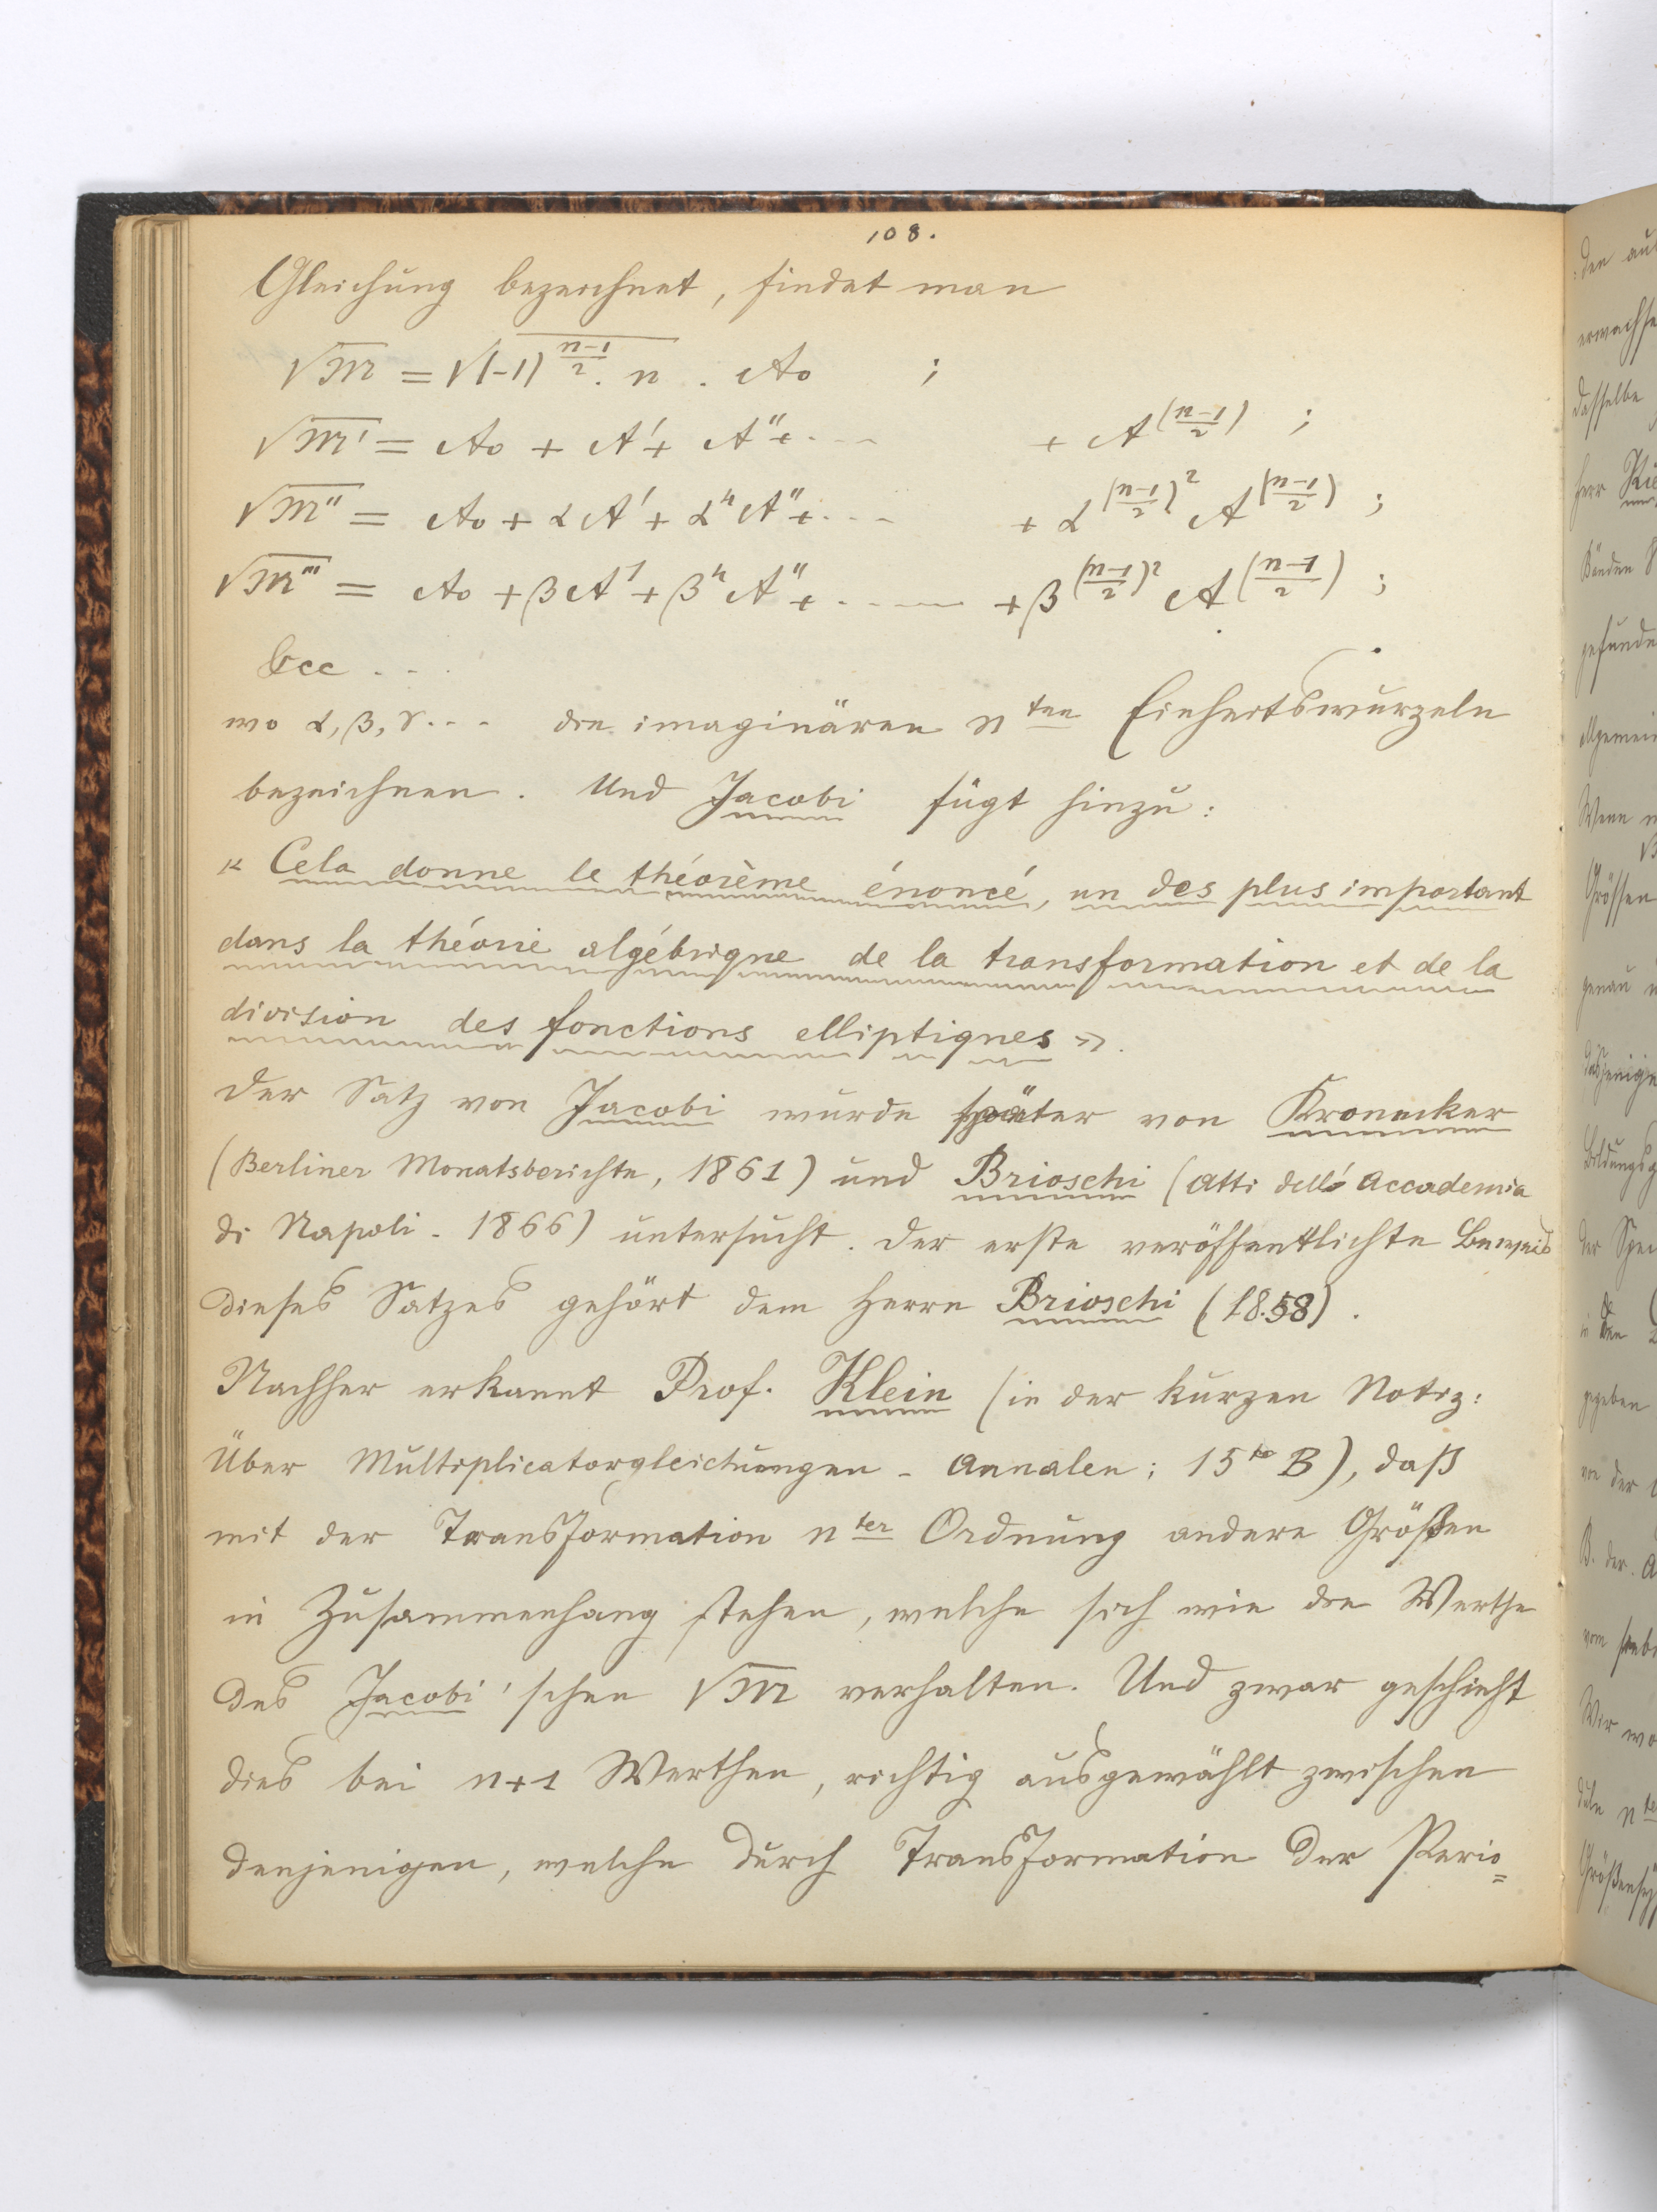 108.
Gleichung bezeichnet, findet man
√M = √(-1)^((n-1)/2) . n . A₀ ;
√M' = A₀ + A' + A'' + .... + A^((n-1)/2) ;
√M'' = A₀ + αA' + α⁴A'' + .... + α^((n-1)/2)² A^((n-1)/2) ;
√M''' = A₀ + βA' + β⁴A'' + ..... + β^((n-1)/2)² A^((n-1)/2) ;
&cc ...
wo α, β, γ... die imaginären n ten Einheitswurzeln
bezeichnen. Und Jacobi fügt hinzu:
« Cela donne le théorème énoncé, un des plus important
dans la théorie algébrique de la transformation et de la
division des fonctions elliptiques ».
Der Satz von Jacobi wurde später von Kronecker
(Berliner Monatsberichte, 1861) und Brioschi (Atti dell' Accademia
di Napoli - 1866) untersucht. Der erste veröffentlichte Beweis
dieses Satzes gehört dem Herrn Brioschi (1858).
Nachher erkannt Prof. Klein (in der kurzen Notiz:
Über Multiplicatorgleichungen - Annalen; 15 te B), daß
mit der Transformation n ter Ordnung andere Größen
in Zusammenhang stehen, welche sich wie die Werthe
des Jacobi'schen √M verhalten. Und zwar geschieht
dies bei n+1 Werthen, richtig ausgewählt zwischen
denjenigen, welche durch Transformation der Perio=